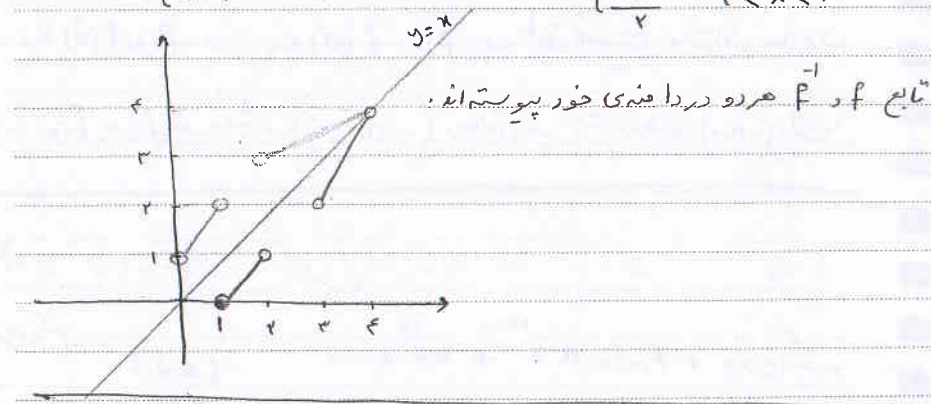 y=x
تابع f و f⁻¹ هر دو در دامنه‌ی خود پیوسته‌اند.
۴
۳
۲
۱
۱ ۲ ۳ ۴